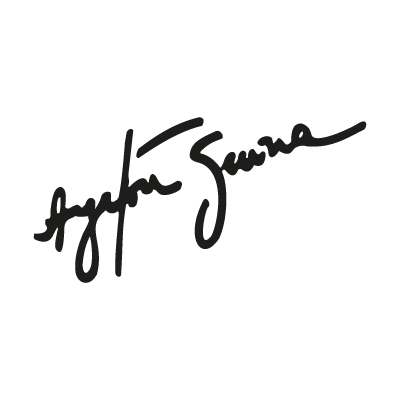 Ayrton Senna